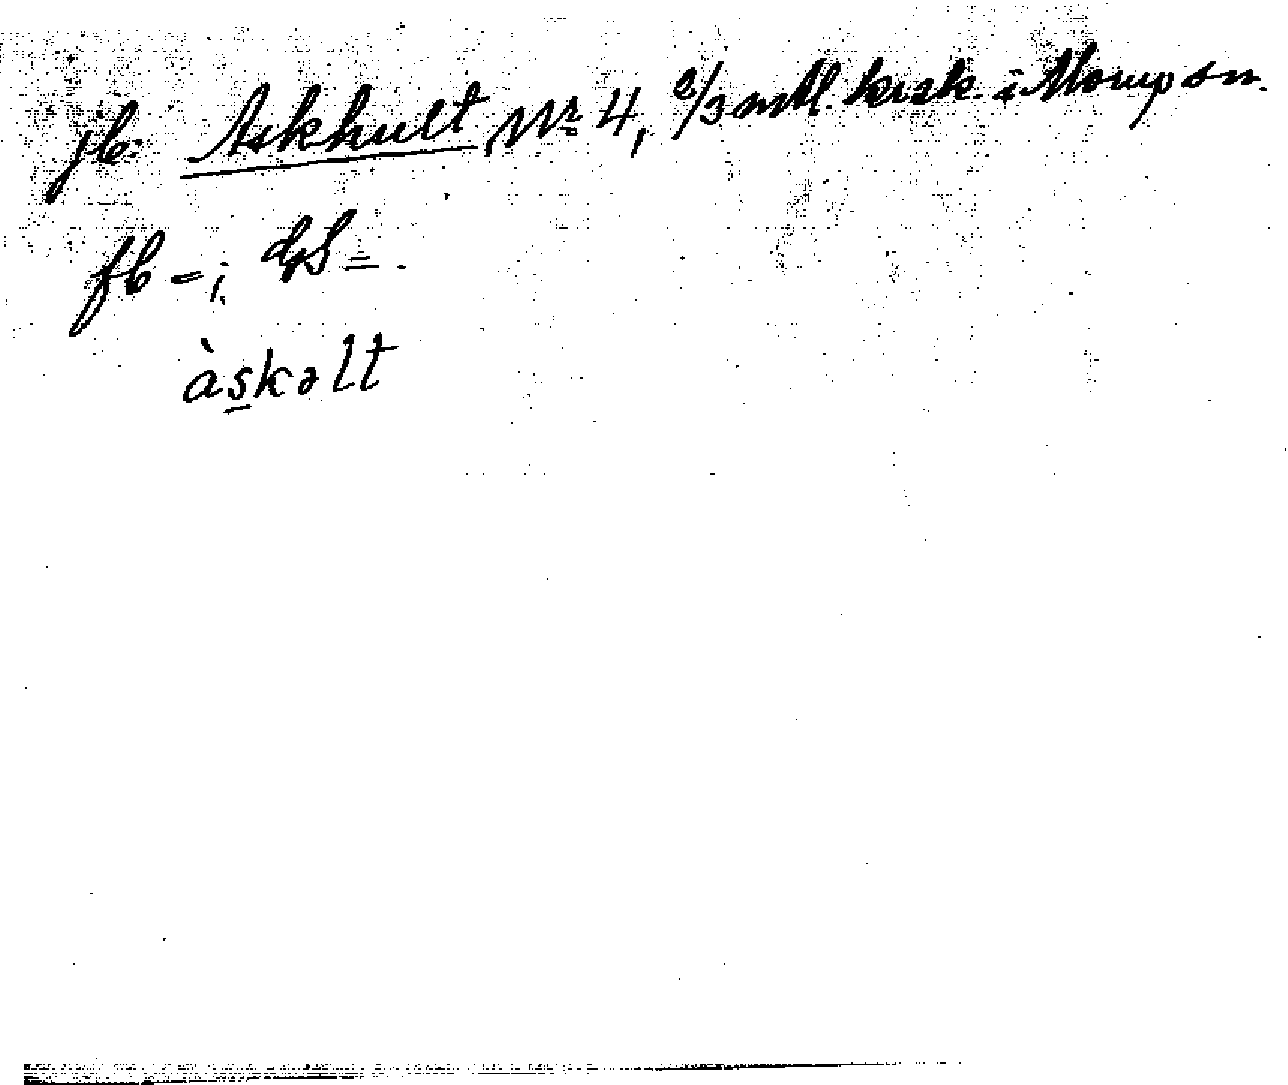 jb: Askhult Nr 4, 2/3 mtl. krsk. i Morup sn.
fb = i GS = .
àskəlt